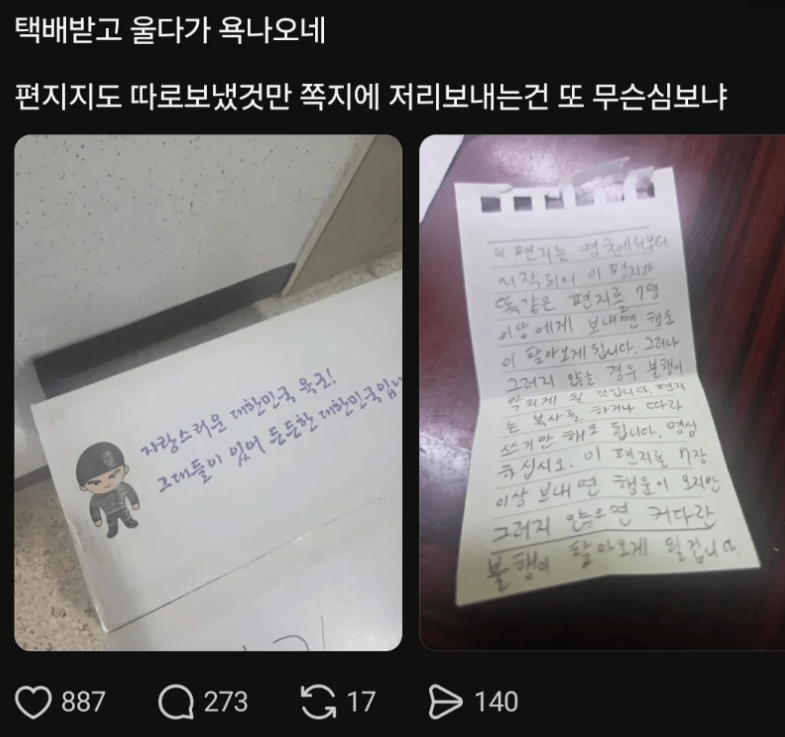 택배받고 울다가 욕나오네
편지지도 따로보냈것만 쪽지에 저리보내는건 또 무슨심보냐
자랑스러운 대한민국 육군!
그대들이 있어 든든한 대한민국입니
이 편지는 영국에서부터
시작되어 이 편지와
똑같은 편지를 7명
이상에게 보내면 행운
이 찾아오게 됩니다. 그러나
그러지 않을 경우 불행이
닥치게 될 것입니다. 편지
는 복사를 하거나 따라
쓰기만 해도 됩니다. 명심
하십시오. 이 편지를 7장
이상 보내면 행운이 오지만
그러지 않으면 커다란
불행이 찾아오게 될겁니다.
887 273 17 140